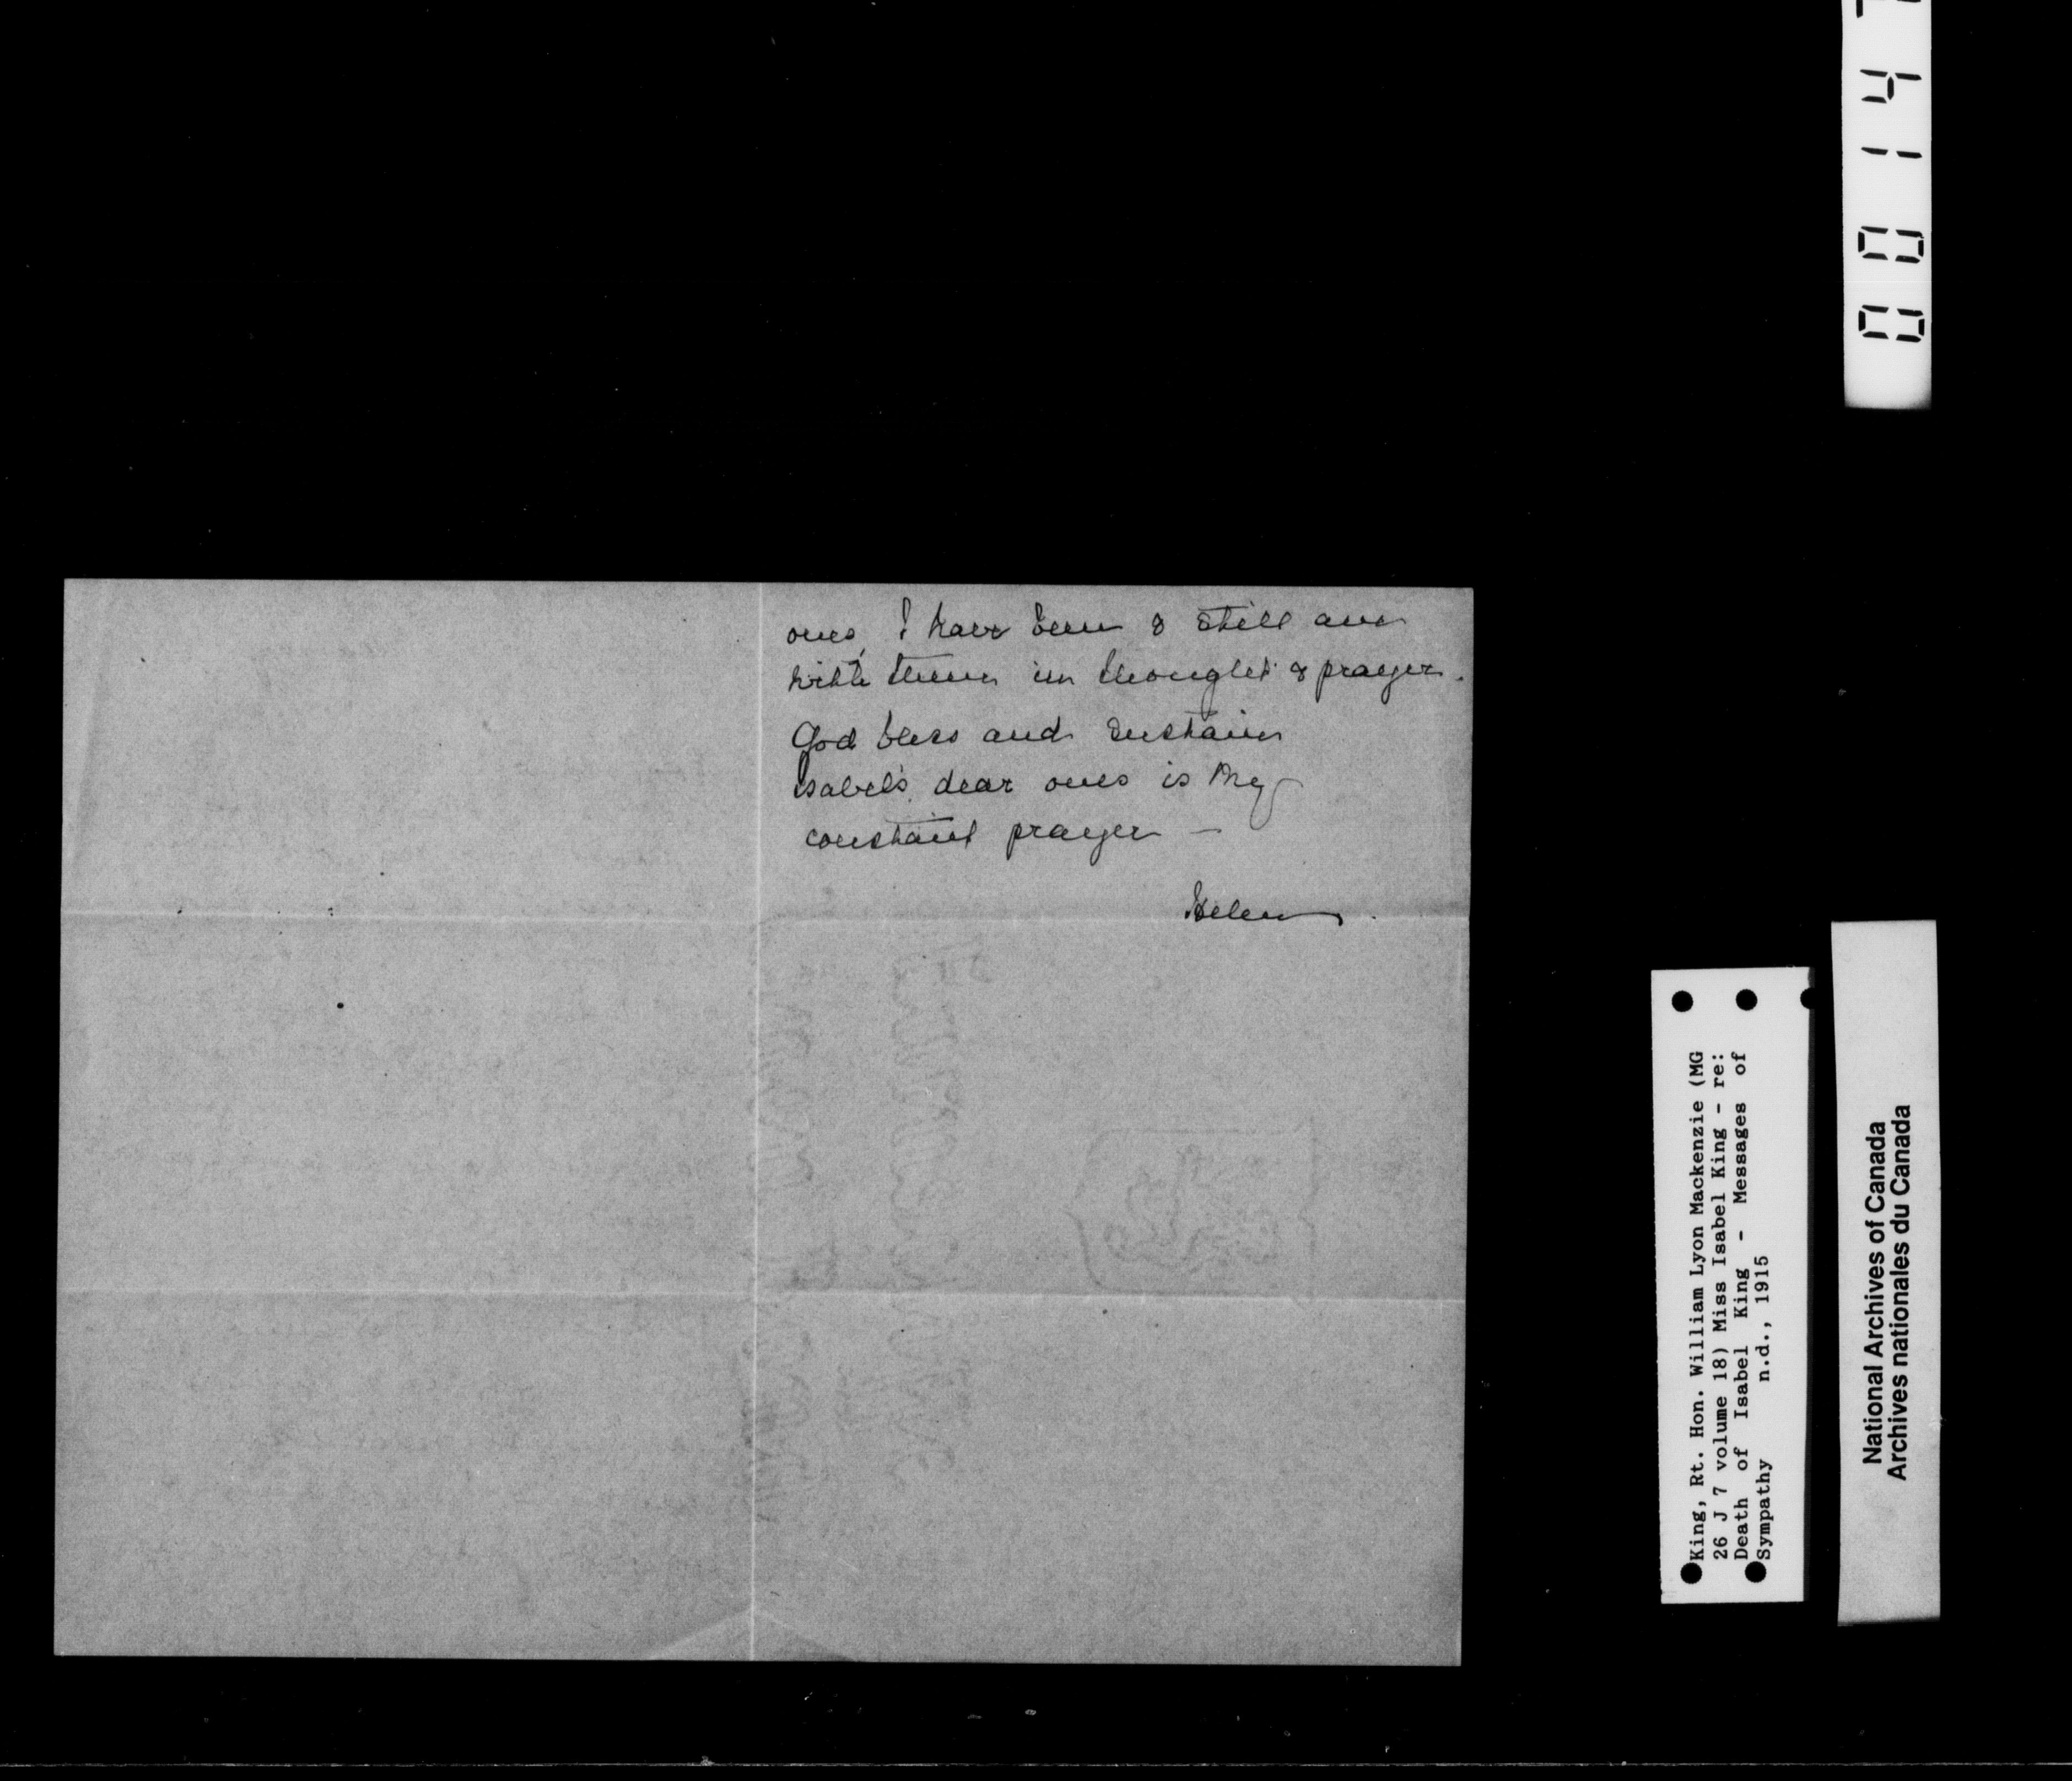 ones, I have been & still am
with them in thought & prayer.
God bless and sustain
Isabel's dear ones is my
constant prayer —
Helen.
0014
King, Rt. Hon. William Lyon Mackenzie (MG
26 J 7 volume 18) Miss Isabel King - re:
Death of Isabel King - Messages of
Sympathy n.d., 1915
National Archives of Canada
Archives nationales du Canada